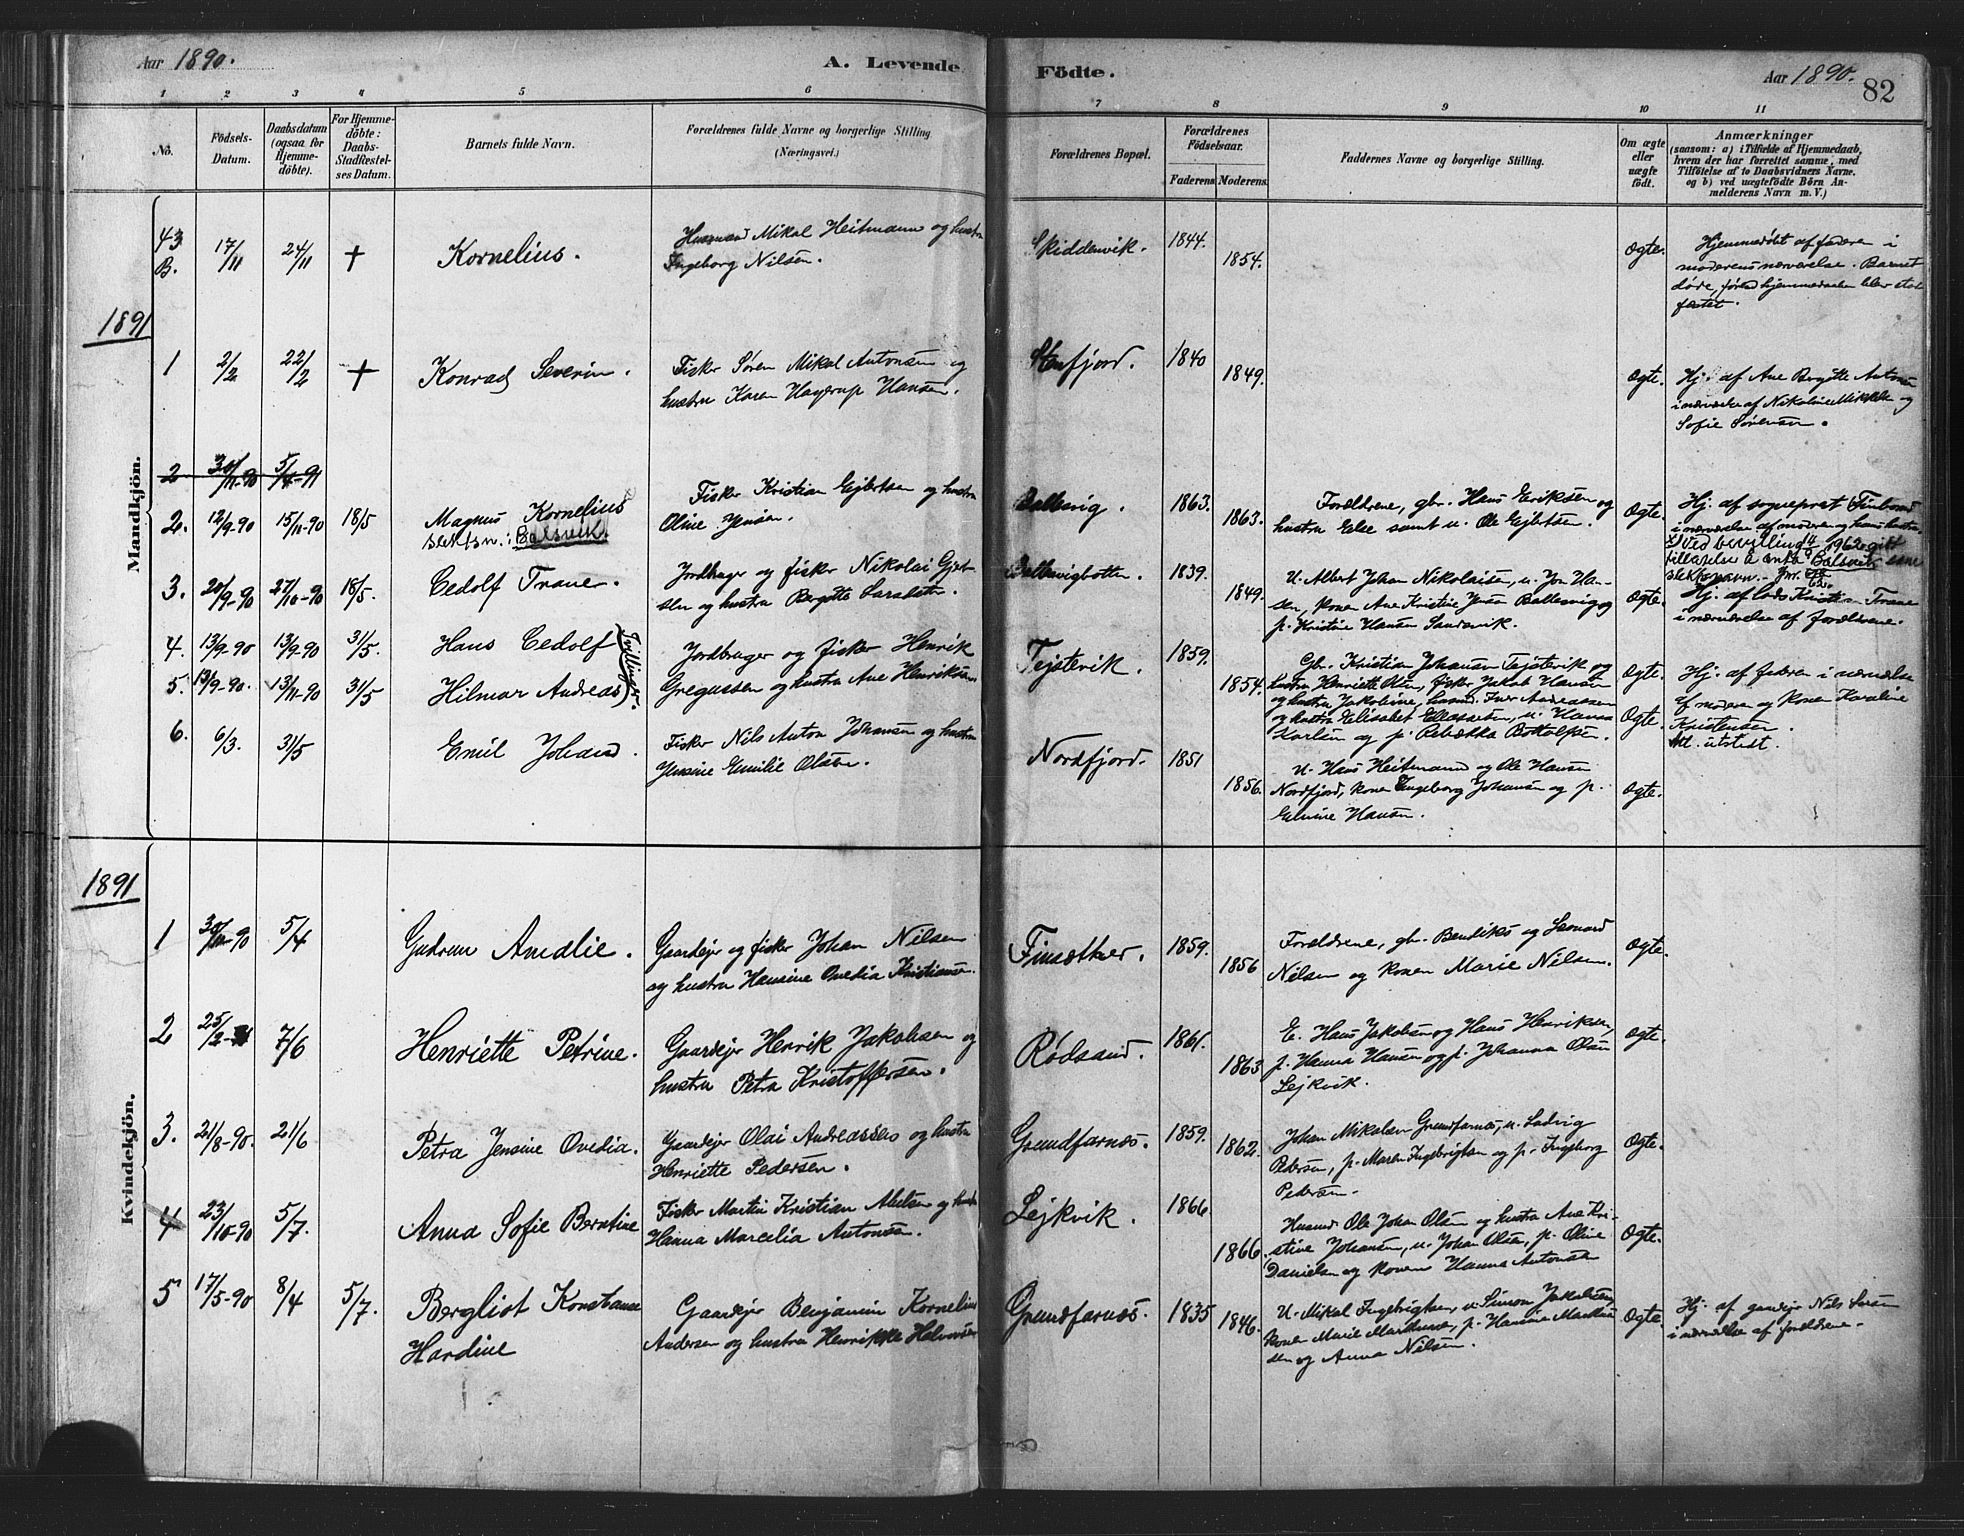 Aar 1890.
A. Levende
Fødte.
Aar 1890.
82
1 2 3 4 5 6 7 8 9 10 11
No.
Fødsels-
Datum.
Daabsdatum
(ogsaa for
Hjemme-
døbte).
For Hjemme-
døbte:
Daabs-
Stadfæstel-
ses Datum.
Barnets fulde Navn.
Forældrenes fulde Navne og borgerlige Stilling
(Næringsvei.)
Forældrenes Bopæl.
Forældrenes
Fødselsaar.
Faderens. Moderens.
Faddernes Navne og borgerlige Stilling.
Om ægte
eller
uægte
født.
Anmærkninger
(saasom: a) i Tilfælde af Hjemmedaab,
hvem der har forrettet samme, med
Tilføielse af to Daabsvidners Navne,
og b) ved uægtefødte Børn An-
melderens Navn m. V.)
Mandkjøn.
43
B.
17/11 24/11 +
Kornelius.
Husmand Mikal Heitmann og hustru
Ingeborg Nilsen.
Skiddenvik. 1844. 1854. Ægte.
Hjemmedøbt af faderen i
moderens nærværelse. Barnet
døde, førend hjemmedaaben blev stad
fæstet.
1891
1 2/2 22/2 +
Konrad Severin.
Fisker Søren Mikal Antonsen og
hustru Karen Hagerup Hansen.
Stenfjord. 1840 1849. Ægte.
Hj. af Ane Bergitte Antons
i nærværelse af Nikoline Mikkels og
Sofie Sørensen.
2 30/11-90 5/4-91
2. 12/9-90 15/11-90 18/5
Magnus Kornelius
slektsn.: Balsvik
Fisker Kristian Ejlertsen og hustru
Oline Jensen.
Ballesvig. 1863. 1863.
Forældrene, gbr. Hans Eriksen og
hustru Else samt u. Ole Ejlertsen.
Ægte.
Hj. af sogneprest Finbond
i nærværelse af moderen og hans hustru.
x) Ved bevilling 4/9 1962 gitt
tillatelse å anta Balsvik som
slektsnavn.
3. 20/9-90 27/10-90 18/5.
Cedolf Trane.
Jordbruger og fisker Nikolai Gjert-
sen og hustru Bergitte
Ballesvigbotten. 1839. 1849.
U. Albert Johan Nikolaisen, u. Jon Han-
sen, konen Ane Kristine Jensen Ballesvig og
p. Kristine Hansen Sandsvik.
Ægte.
Hj. af lods Kristian Trane
i nærværelse af forældrene.
4. 13/9-90 13/9-90 31/5.
Hans Cedolf
5. 13/9-90. 13/11-90 31/5
Hilmar Andreas
Tvillinger.
Jordbruger og fisker Henrik
Gregussen og hustru Ane Henriksen
Tejstevik. 1859. 1854.
Gbr. Kristian Johansen Tejstevik og
hustru Henriette Olsen, fisker Jakob Hansen
og hustru Jakobine, husmd. Iver Andreassen
og hustru Elisabet Eliassen, u. Hanna
Karlsen og p. Rebækka Bottolfsen.
Ægte.
Ægte.
Hj. af faderen i nærværelse
af moderen og konen Karoline
Kristensen.
Att. utstedt.
6. 6/3. 31/5
Emil Johan.
Fisker Nils Anton Johansen og hustru
Jensine Emilie Olsen.
Nordfjord. 1851 1856.
U. Hans Heitmann og Ole Hansen
Nordfjord, konen Ingeborg Johansen og p.
Elvine Hansen.
Ægte.
1891
Kvindekjøn.
1 30/11-90 5/4
Gudrun Amalie.
Gaardejer og fisker Johan Nilsen
og hustru Hansine Ovedia Kristianse.
Finsæther. 1859. 1856
Forældrene, gbr. Bendiks og Leonard
Nilsen og konen Marie Nilsen.
Ægte.
2 25/2- 7/6
Henriette Petrine.
Gaardejer Henrik Jakobsen og
hustru Petra Kristoffersen.
Rødsand. 1861. 1863
E. Hans Jakobsen og Hans Henriksen,
p. Hanna Hansen og p. Johanna Olsen
Lejkvik.
Ægte.
3. 21/8-90. 21/6
Petra Jensine Ovedia.
Gaardejer Olai Andreassen og hustru
Henriette Pedersen.
Grundfarnæs. 1859. 1862.
Johan Mikalsen Grundfarnæs, u. Ludvig
Pedersen, p. Maren Ingebrigtsen og p. Ingeborg
Pedersen.
Ægte.
4 23/10-90 5/7.
Anna Sofie Berntine
Fisker Martin Kristian Nielsen og hustru
Hanna Marcelia Antonsen.
Lejkvik. 1866 1866.
Husmd. Ole Johan Olsen og hustru Ane Kri-
stine Johansen, u. Johan Olsen, p. Oline
Danielsen og konen Hanna Antonsen
Ægte.
5 17/5-90 8/4 5/7.
Bergliot Konstanse
Hardine
Gaardejer Benjamin Kornelius
Andersen og hustru Henrikke Halvorsen
Grundfarnæs. 1835 1846.
U. Mikal Ingebrigtsen, u. Simon Jakobsen,
konen Marie Markusse, p. Hansine Markus
sen og Anna Nilsen.
Ægte.
Hj. af gaardejer Nils Larsen
i nærværelse af forældrene.